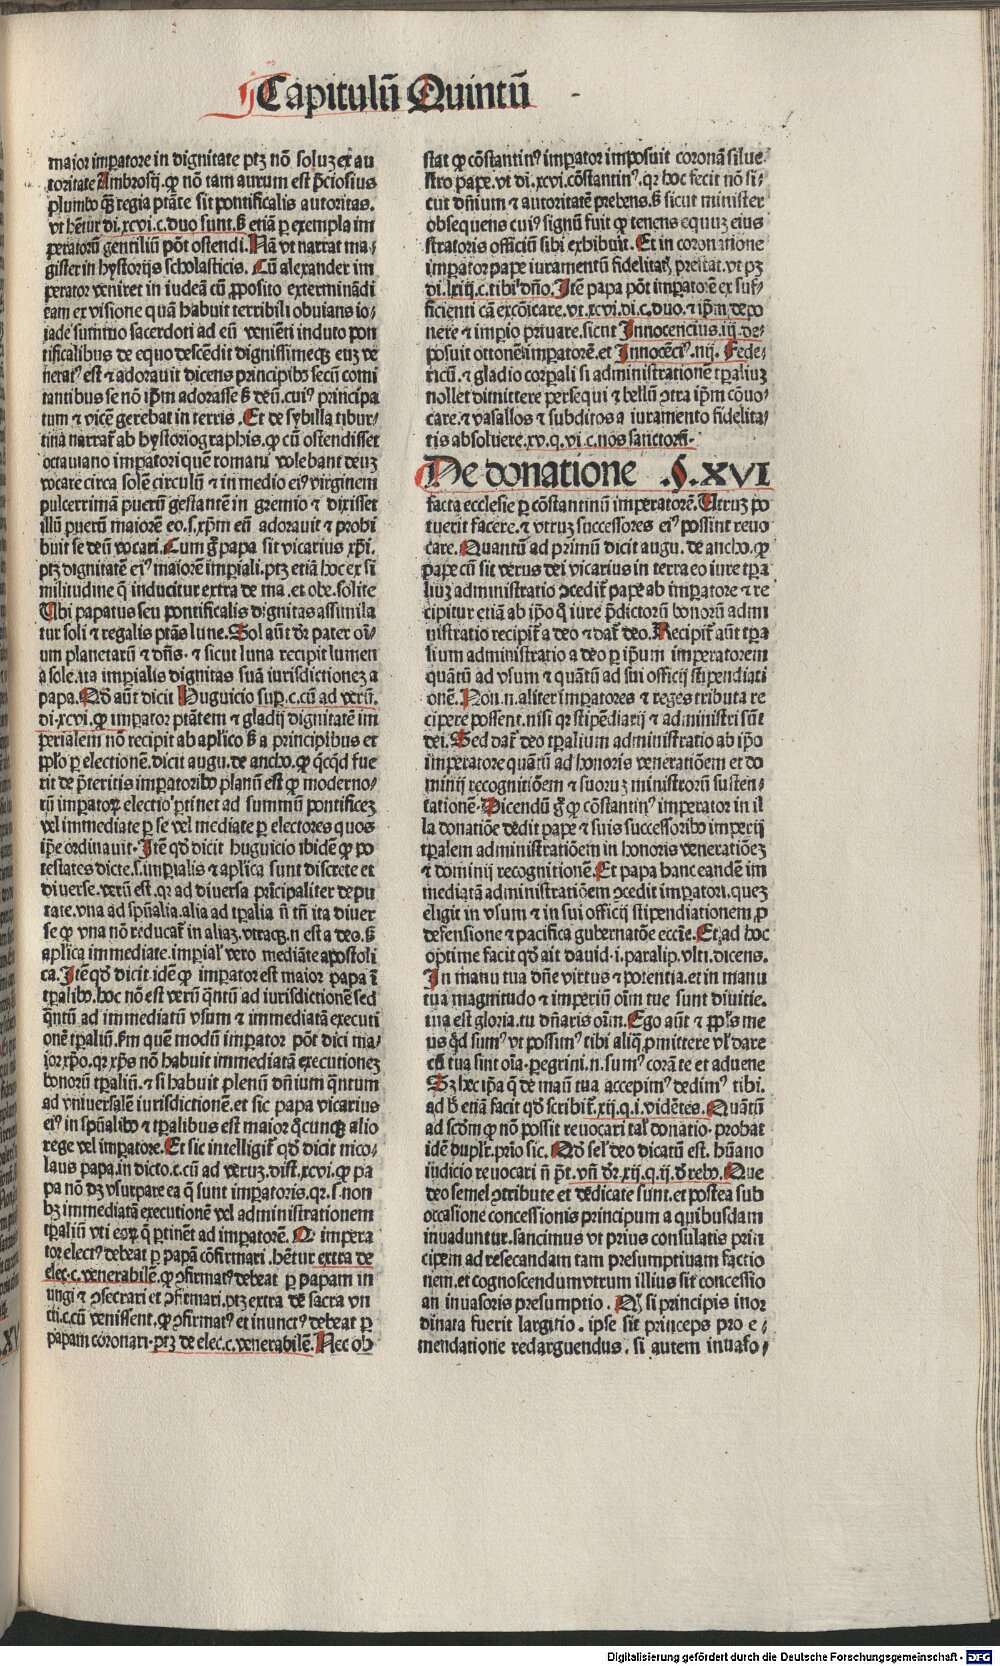 Capitulū Quintū
maior imꝑatore in dignitate ptꝫ nō soluꝫ ex au
toritate Ambrosij. ꝙ nō tam aurum est p̄ciosius
plumbo qꝫ regia ptāte sit pontificalis autoritas.
vt hētur di. xcvi. c. duo sunt. ſꝫ etiā ꝑ exempla im
peratorū gentiliū pōt ostendi. Nā vt narrat ma-
gister in hystorijs scholasticis. Cū alexander im
perator veniret in iudeā cū ꝓposito exterminādi
eam ex visione quā habuit terribili obuians io-
iade summo sacerdoti ad eū veniēti induto pon
tificalibus de equo descēdit dignissimeqꝫ euꝫ ve
neratꝰ est ⁊ adorauit dicens principibꝰ secū comi
tantibus se nō ip̄m adorasse ſꝫ deū. cuiꝰ principa
tum ⁊ vicē gerebat in terris. Et de sybilla tibur-
tina narrat̄ ab hystoriographis. ꝙ cū ostendisset
octauiano imꝑatori quē romani volebant deuꝫ
vocare circa solē circulū ⁊ in medio eiꝰ virginem
pulcerrimā puerū gestantē in gremio ⁊ dixisset
illū puerū maiorē eo. s. xp̄m eū adorauit ⁊ prohi
buit se deū vocari. Cum g̊ papa sit vicarius xp̄i.
ptꝫ dignitatē eiꝰ maiorē imꝑiali. ptꝫ etiā hoc ex si
militudine q̄ inducitur extra de ma. et obe. solite
Ubi papatus seu pontificalis dignitas assimila
tur soli ⁊ regalis ptās lune. Sol aūt dr̄ pater oī-
um planetarū ⁊ dn̄s. ⁊ sicut luna recipit lumen
a sole. ita imꝑialis dignitas suā iurisdictioneꝫ a
papa. Qđ aūt dicit Huguicio suꝑ. c. cū ad verū.
di. xcvi. ꝙ imꝑator ptātem ⁊ gladij dignitatē im
perialem nō recipit ab aplico ſꝫ a principibus et
pplo ꝑ electionē. dicit augu. de ancho. ꝙ qcqd fue
rit de p̄teritis imꝑatoribꝰ planū est ꝙ moderno-
rū imꝑatoꝝ electio ꝑtinet ad summū pontificeꝫ
vel immediate ꝑ se vel mediate ꝑ electores quos
ip̄e ordinauit. Itē qđ dicit huguicio ibidē ꝙ po
testates dicte. s. imꝑialis ⁊ aplica sunt discrete et
diuerse. verū est. qꝛ ad diuersa prīcipaliter depu
tate. vna ad spūalia. alia ad tꝑalia n̄ tn̄ ita diuer
se ꝙ vna nō reducat̄ in aliaꝫ. vtraqꝫ. n. est a deo. ſꝫ
aplica immediate. imꝑial̄ vero mediāte apostoli
ca. Itē qđ dicit idē ꝙ imꝑator est maior papa ī
tꝑalibꝰ. hoc nō est verū q̄ntū ad iurisdictionē sed
q̄ntū ad immediatū vsum ⁊ immediatā executi
onē tꝑaliū. ẜm quē modū imꝑator pōt dici ma-
ior xp̄o. qꝛ xp̄s nō habuit immediatā executioneꝫ
bonorū tꝑaliū. ⁊ si habuit plenū dn̄ium q̄ntum
ad vniuersalē iurisdictionē. et sic papa vicarius
eiꝰ in spūalibꝰ ⁊ tꝑalibus est maior q̄cunqꝫ alio
rege vel imꝑatore. Et sic intelligit̄ qđ dicit nico-
laus papa. in dicto. c. cū ad veruꝫ. dist. xcvi. ꝙ pa
pa nō dꝫ vsurpare ea q̄ sunt imꝑatoris. qꝛ. s. non
hꝫ immediatā executionē vel administrationem
tꝑaliū vti eoꝝ q̄ ꝑtinēt ad imꝑatorē. Q imꝑera
tor electꝰ debeat ꝑ papā cōfirmari. hētur extra de
elec. c. venerabilē. ꝙ ↄfirmatꝰ debeat ꝑ papam in
ungi ⁊ ↄsecrari et ↄfirmari. ptꝫ extra dē sacra vn
cti. c. cū venissent. ꝙ ↄfirmatꝰ et inunctꝰ debeat ꝑ
papam coronari. ptꝫ de elec. c. venerabilē. Nec ob
stat ꝙ cōstantinꝰ imꝑator imposuit coronā silue-
stro pape. vt di. xcvi. cōstantinꝰ. qꝛ hoc fecit nō si-
cut dn̄ium ⁊ autoritatē prebens. ſꝫ sicut minister
obsequens cuiꝰ signū fuit ꝙ tenens equuꝫ eius
stratoris officiū sibi exhibuit. Et in coronatione
imꝑator pape iuramentū fidelitat̄ prestat. vt pꝫ
di. lxiij. c. tibi dn̄o. Itē papa pōt imꝑatorē ex suf-
ficienti cā excōicare. vt. xcvi. di. c. duo. ⁊ ip̄m depo
nere ⁊ imperio priuare. sicut Innocencius. iij. de-
posuit ottonē imꝑatorē. et Innocēciꝰ. iiij. Fede-
ricū. ⁊ gladio corꝑali si administrationē tꝑaliuꝫ
nollet dimittere persequi ⁊ bellū ↄtra ip̄m cōuo-
care. ⁊ vasallos ⁊ subditos a iuramento fidelita-
tis absoluere. xv. q. vi. c. nos sanctorū.
De donatione .§. XVI
facta ecclesie ꝑ cōstantinū imperatorē. Utruꝫ po
tuerit facere. ⁊ vtruꝫ successores eiꝰ possint reuo
care. Quantū ad primū dicit augu. de ancho. ꝙ
pape cū sit verus dei vicarius in terra eo iure tꝑa
liuꝫ administratio ↄcedit̄ pape ab imꝑatore ⁊ re
cipitur etiā ab ip̄o q̄ iure p̄dictorū bonorū admi
nistratio recipit̄ a deo ⁊ dat̄ deo. Recipit̄ aūt tꝑa
lium administratio a deo ꝑ ip̄um imperatorem
quātū ad vsum ⁊ quātū ad sui officij stipendiati
onē. Non. n. aliter imꝑatores ⁊ reges tributa re
cipere possent. nisi qꝛ stipēdiarij ⁊ administri sūt
dei. Sed dat̄ deo tꝑalium administratio ab ip̄o
imperatore quātū ad honoris veneratiōem et do
minij recognitiōem ⁊ suoruꝫ ministrorū susten-
tationē. Dicendū g̊ ꝙ cōstantinꝰ imperator in il
la donatiōe dedit pape ⁊ suis successoribꝰ imperij
tꝑalem administratiōem in honoris veneratiōeꝫ
⁊ dominij recognitionē. Et papa hanc eandē im
mediatā administratiōem ↄcedit imꝑatori. queꝫ
eligit in vsum ⁊ in sui officij stipendiationem ꝓ
defensione ⁊ pacifica gubernatōe ecctie. Et ad hoc
optime facit qđ ait dauid. i. paralip. vlti. dicens.
In manu tua dn̄e virtus ⁊ potentia. et in manu
tua magnitudo ⁊ imperiū oīm tue sunt diuitie.
tua est gloria. tu dn̄aris oīm. Ego aūt ⁊ ppl̄s me
us qđ sumꝰ vt possimꝰ tibi aliq ꝓmittere vl̄ dare
cū tua sint oīa. ꝑegrini. n. sumꝰ corā te et aduene
Sꝫ hec ip̄a q̄ de manū tua accepimꝰ dedimꝰ tibi.
ad hͦ etiā facit qđ scribit̄. xij. q. i. vidētes. Quātū
ad scdm ꝙ nō possit reuocari tal̄ donatio. probat
idē duplr̄. prio sic. Qđ sel̄ deo dicatū est. hūano
iudicio reuocari n̄ pōt. vn̄ dr̄. xij. q. ij. ōs rebꝰ. Que
deo semel ↄtribute et dedicate sunt. et postea sub
occasione concessionis principum a quibusdam
inuaduntur. sancimus vt prius consulatis prin
cipem ad resecandam tam presumptiuam factio
nem. et cognoscendum vtrum illius sit concessio
an inuasoris presumptio. Qđ si principis inor
dinata fuerit largitio. ipse sit princeps pro e-
mendatione redarguendus. si autem inuaso-
Digitalisierung gefördert durch die Deutsche Forschungsgemeinschaft - DFG